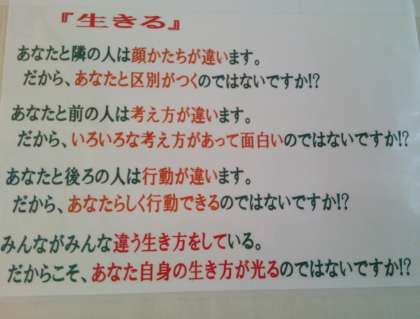 『生きる』
あなたと隣の人は顔かたちが違います。
だから、あなたと区別がつくのではないですか!?
あなたと前の人は考え方が違います。
だから、いろいろな考え方があって面白いのではないですか!?
あなたと後ろの人は行動が違います。
だから、あなたらしく行動できるのではないですか!?
みんながみんな違う生き方をしている。
だからこそ、あなた自身の生き方が光るのではないですか!?